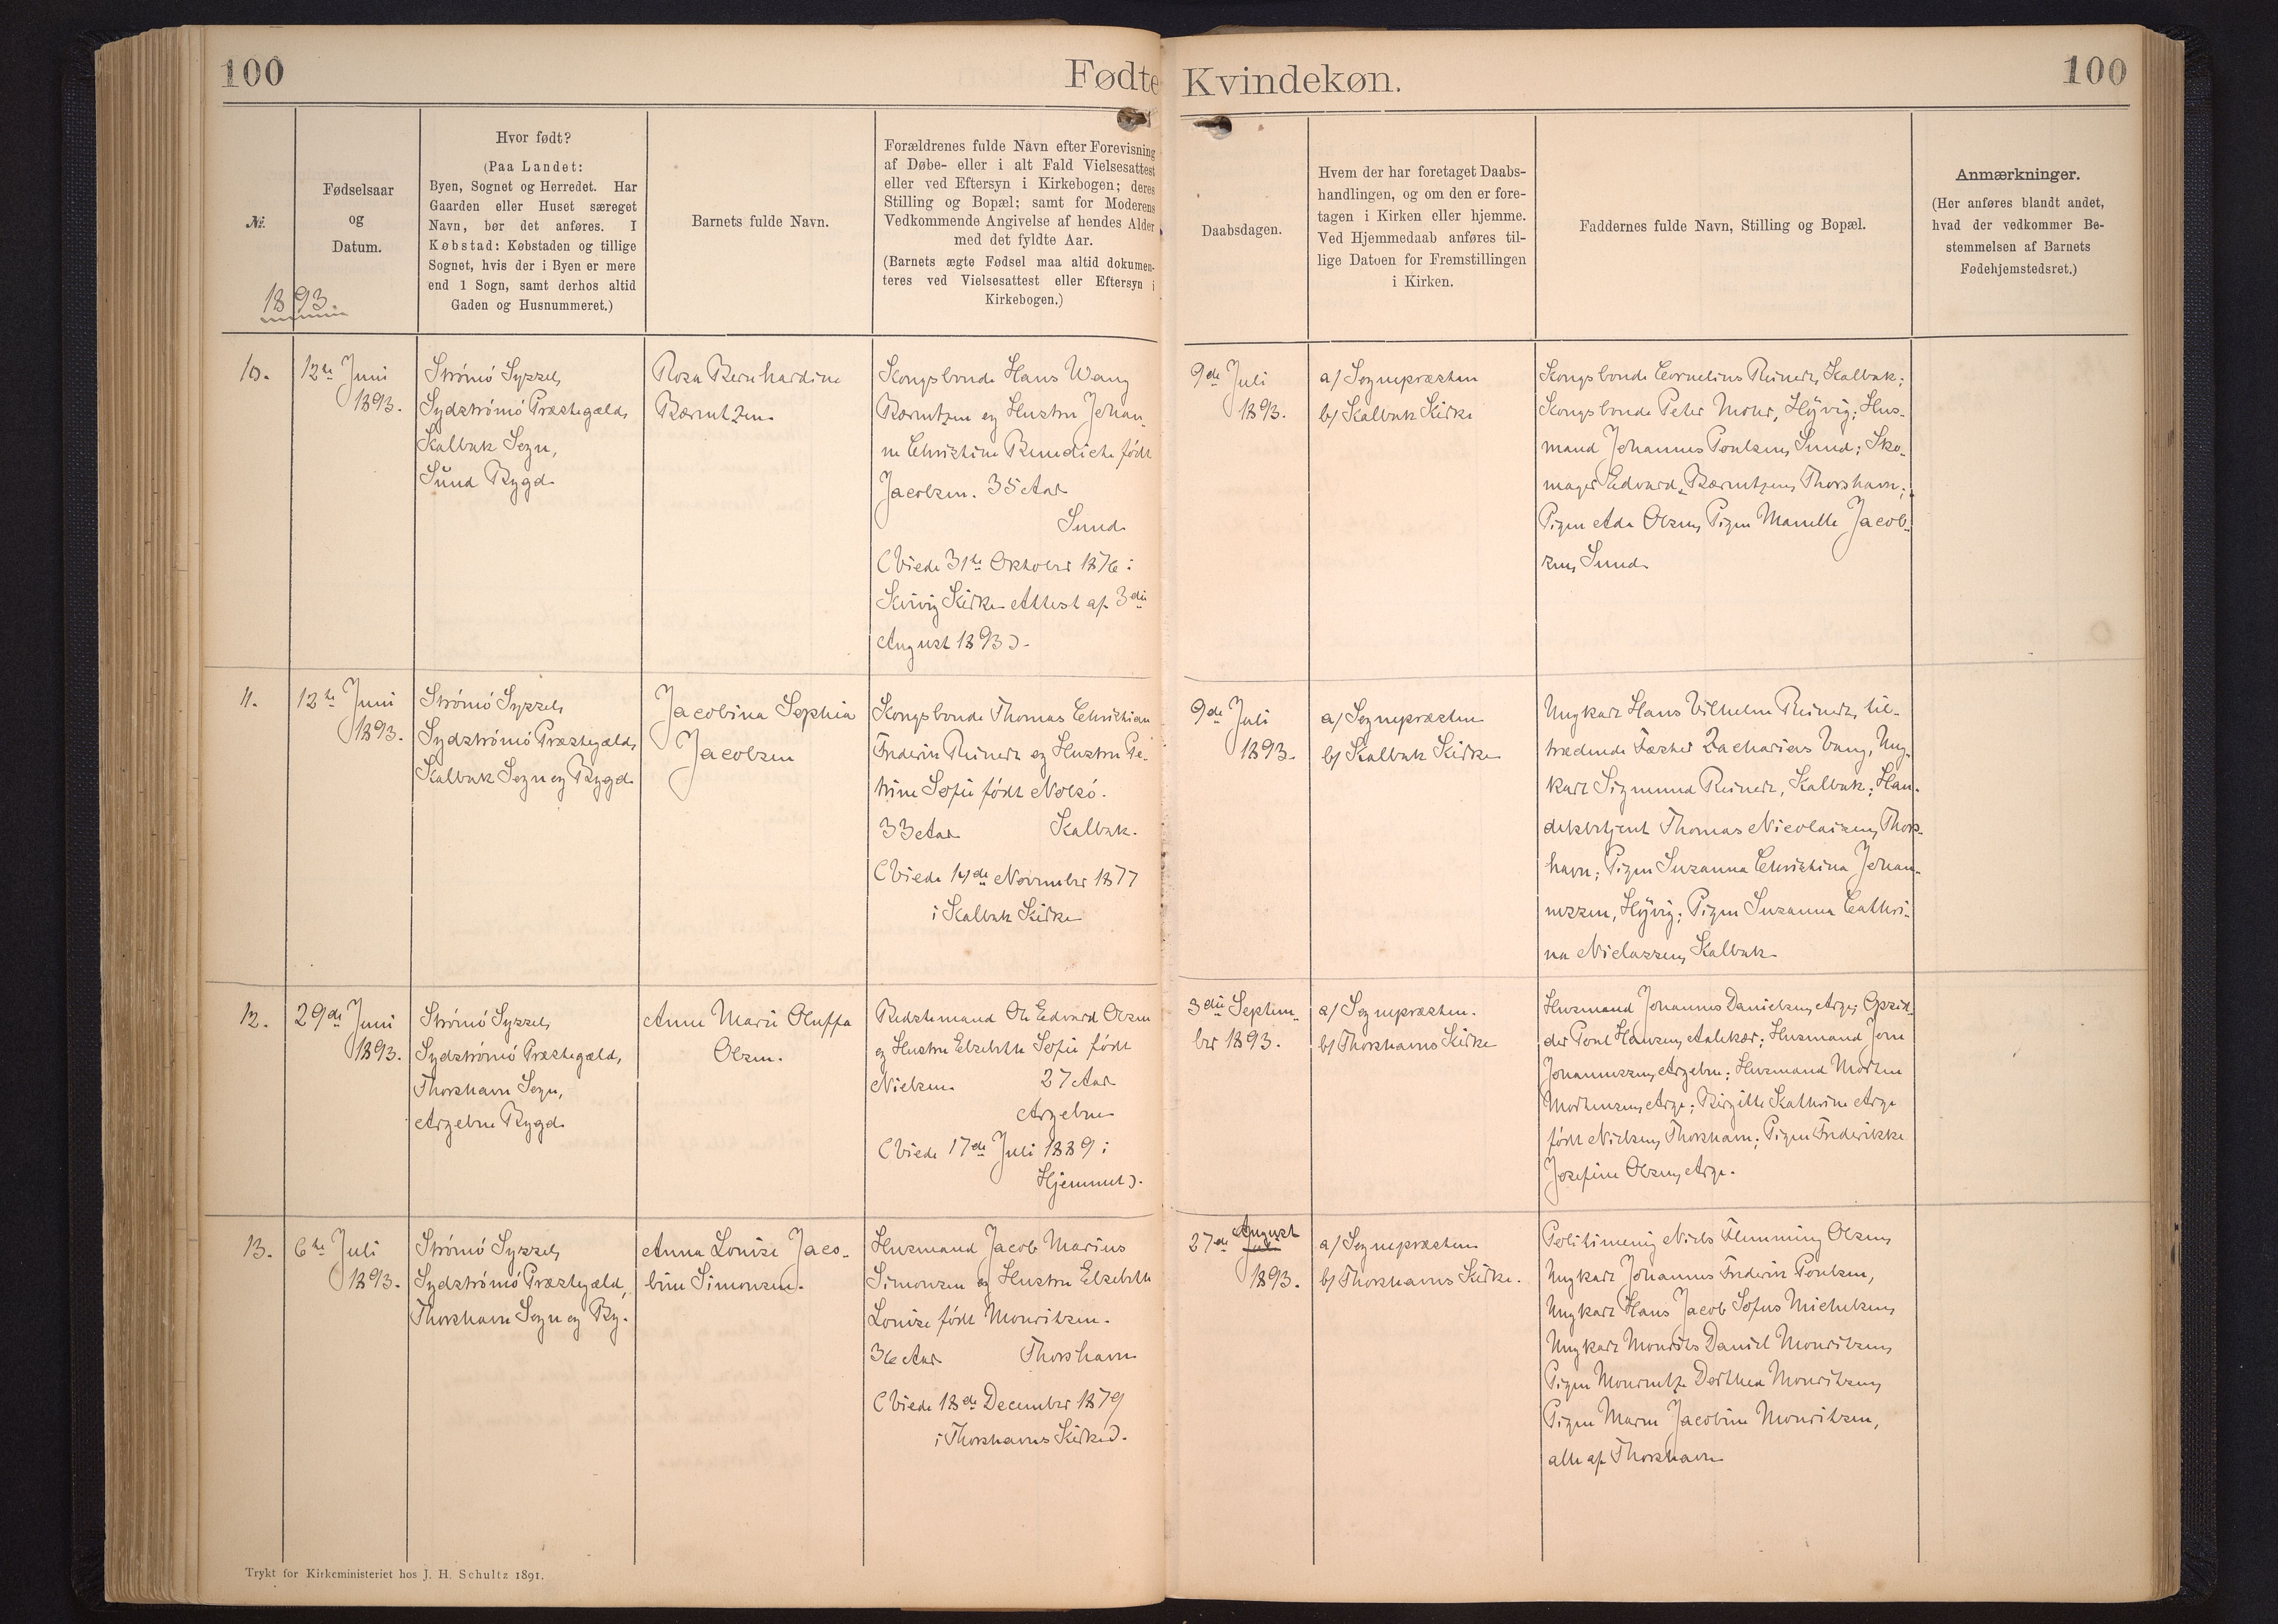 100
Fødte
Kvindekøn.
100
№
1893.
Fødselsaar
og
Datum.
Hvor født?
(Paa Landet:
Byen, Sognet og Herredet. Har
Gaarden eller Huset særeget
Navn, bør det anføres. I
Købstad: Købstaden og tillige
Sognet, hvis der i Byen er mere
end 1 Sogn, samt derhos altid
Gaden og Husnummeret.)
Barnets fulde Navn.
Forældrenes fulde Navn efter Forevisning
af Døbe- eller i alt Fald Vielsesattest
eller ved Eftersyn i Kirkebogen; deres
Stilling og Bopæl; samt for Moderens
Vedkommende Angivelse af hendes Alder
med det fyldte Aar.
(Barnets ægte Fødsel maa altid dokumen-
teres ved Vielsesattest eller Eftersyn i
Kirkebogen.)
Daabsdagen.
Hvem der har foretaget Daabs-
handlingen, og om den er fore-
tagen i Kirken eller hjemme.
Ved Hjemmedaab anføres til-
lige Datoen for Fremstillingen
i Kirken.
Faddernes fulde Navn, Stilling og Bopæl.
Anmærkninger.
(Her anføres blandt andet,
hvad der vedkommer Be-
stemmelsen af Barnets
Fødehjemstedsret.)
10.
12te Juni
1893.
Strömö Syssel,
Sydströmö Præstegæld,
Kalbak Sogn,
Sund Bygd
Rosa Bernhardine
Bærentzen
Kongsbonde Hans Wang
Bærentzen og Hustru Johan-
ne Christine Benedicte födt
Jacobsen. 35 Aar
Sund
(Viede 31te Oktober 1876 i
Kvivig Kirke Attest af 3die
August 1893).
9de Juli
1893.
a) Sognepræsten
b) Kalbak Kirke
Kongsbonde Cornelius Reinert, Kalbak;
Kongsbonde Peter Mohr, Höjvig; Hus-
mand Johannes Poulsen, Sund; Sko-
mager Edvard Bærentzen, Thorshavn;
Pigen Ada Olsen, Pigen Manelle Jacob-
sen, Sund
11.
12te Juni
1893.
Strömö Syssel,
Sydströmö Præstegæld,
Kalbak Sogn og Bygd
Jacobina Sophia
Jacobsen
Kongsbonde Thomas Christian
Frederik Reinert og Hustru Pe-
trine Sofie födt Nolsö.
33 Aar Kalbak.
(Viede 14de November 1877
i Kalbak Kirke
9de Juli
1893.
a) Sognepræsten
b) Kalbak Kirke
Ungkarl Hans Vilhelm Reinert, til-
trædende Fæster Zacharias Vang, Ung-
karl Sigmund Reinert, Kalbak; Han-
delsbetjent Thomas Nicolaisen, Thors-
havn; Pigen Susanna Christina Johan-
nessen, Höjvig; Pigen Susanna Cathri-
na Niclassen, Kalbak
12.
29de Juni
1893.
Strömö Syssel,
Sydströmö Præstegæld,
Thorshavn Sogn,
Argebro Bygd
Anne Marie Oluffa
Olsen.
Bedstemand Ole Edvard Olsen
og Hustru Elsebeth Sofie födt
Nielsen 27 Aar
Argebro
(Viede 17de Juli 1889 i
Hjemmet).
3die Septem-
ber 1893.
a) Sognepræsten.
b) Thorshavns Kirke
Husmand Johannes Danielsen, Arge; Opsid-
der Poul Hansen, Aalekær; Husmand Jone
Johannessen, Argebro; Husmand Morten
Mortensen, Arge; Birgitte Kathrine Arge
födt Nielsen, Thorshavn; Pigen Frederikke
Josefine Olsen, Arge.
13.
6te Juli
1893.
Strömö Syssel,
Sydströmö Præstegæld,
Thorshavn Sogn og By.
Anna Louise Jaco-
bine Simonsen.
Husmand Jacob Marius
Simonsen og Hustru Elsebeth
Louise födt Mouritsen.
36 Aar Thorshavn
(Viede 18de December 1879
i Thorshavns Kirke).
27de August
1893.
a) Sognepræsten
b) Thorshavns Kirke.
Politimenig Niels Flemming Olsen,
Ungkarl Johannes Frederik Poulsen,
Ungkarl Hans Jacob Sofus Michelsen,
Ungkarl Mourits Daniel Mouritsen,
Pigen Mourentze Dorthea Mouritsen,
Pigen Maren Jacobine Mouritsen,
alle af Thorshavn
Trykt for Kirkeministeriet hos J. H. Schultz 1891.